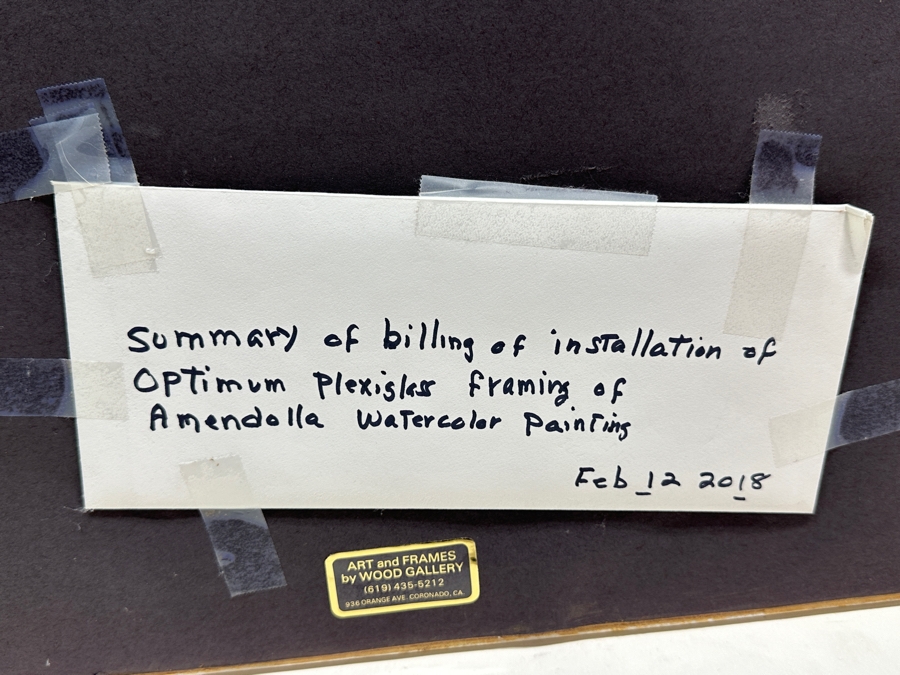 Summary of billing of installation of
Optimum Plexiglass framing of
Amendolla Watercolor Painting
Feb 12 2018
ART and FRAMES
by WOOD GALLERY
(619) 435-5212
936 ORANGE AVE. CORONADO, CA.